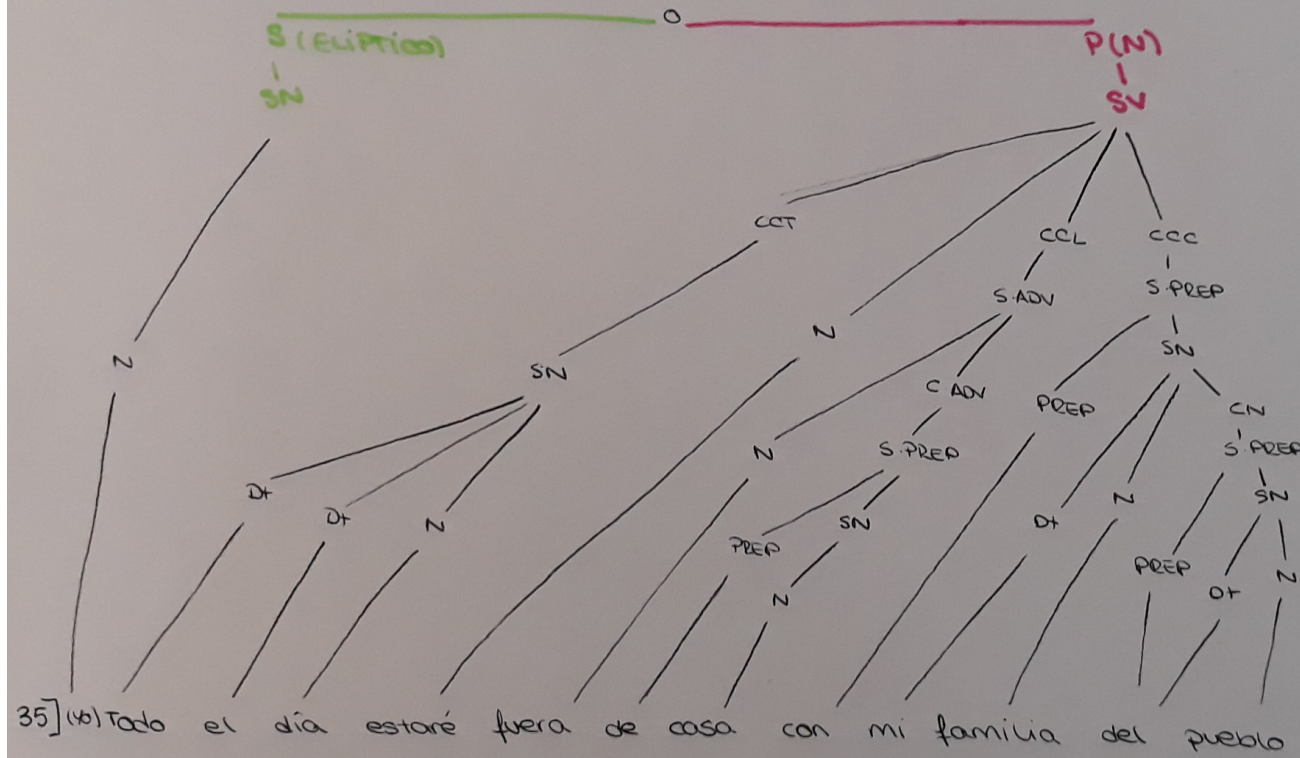 O
S (ELÍPTICO) P(N)
SN SV
CCT CCL CCC
S.ADV S.PREP
N N SN
SN C ADV PREP CN
N S.PREP S.PREP
Dt Dt N PREP SN Dt N SN
N PREP Dt N
35] (Yo) Todo el día estaré fuera de casa con mi familia del pueblo